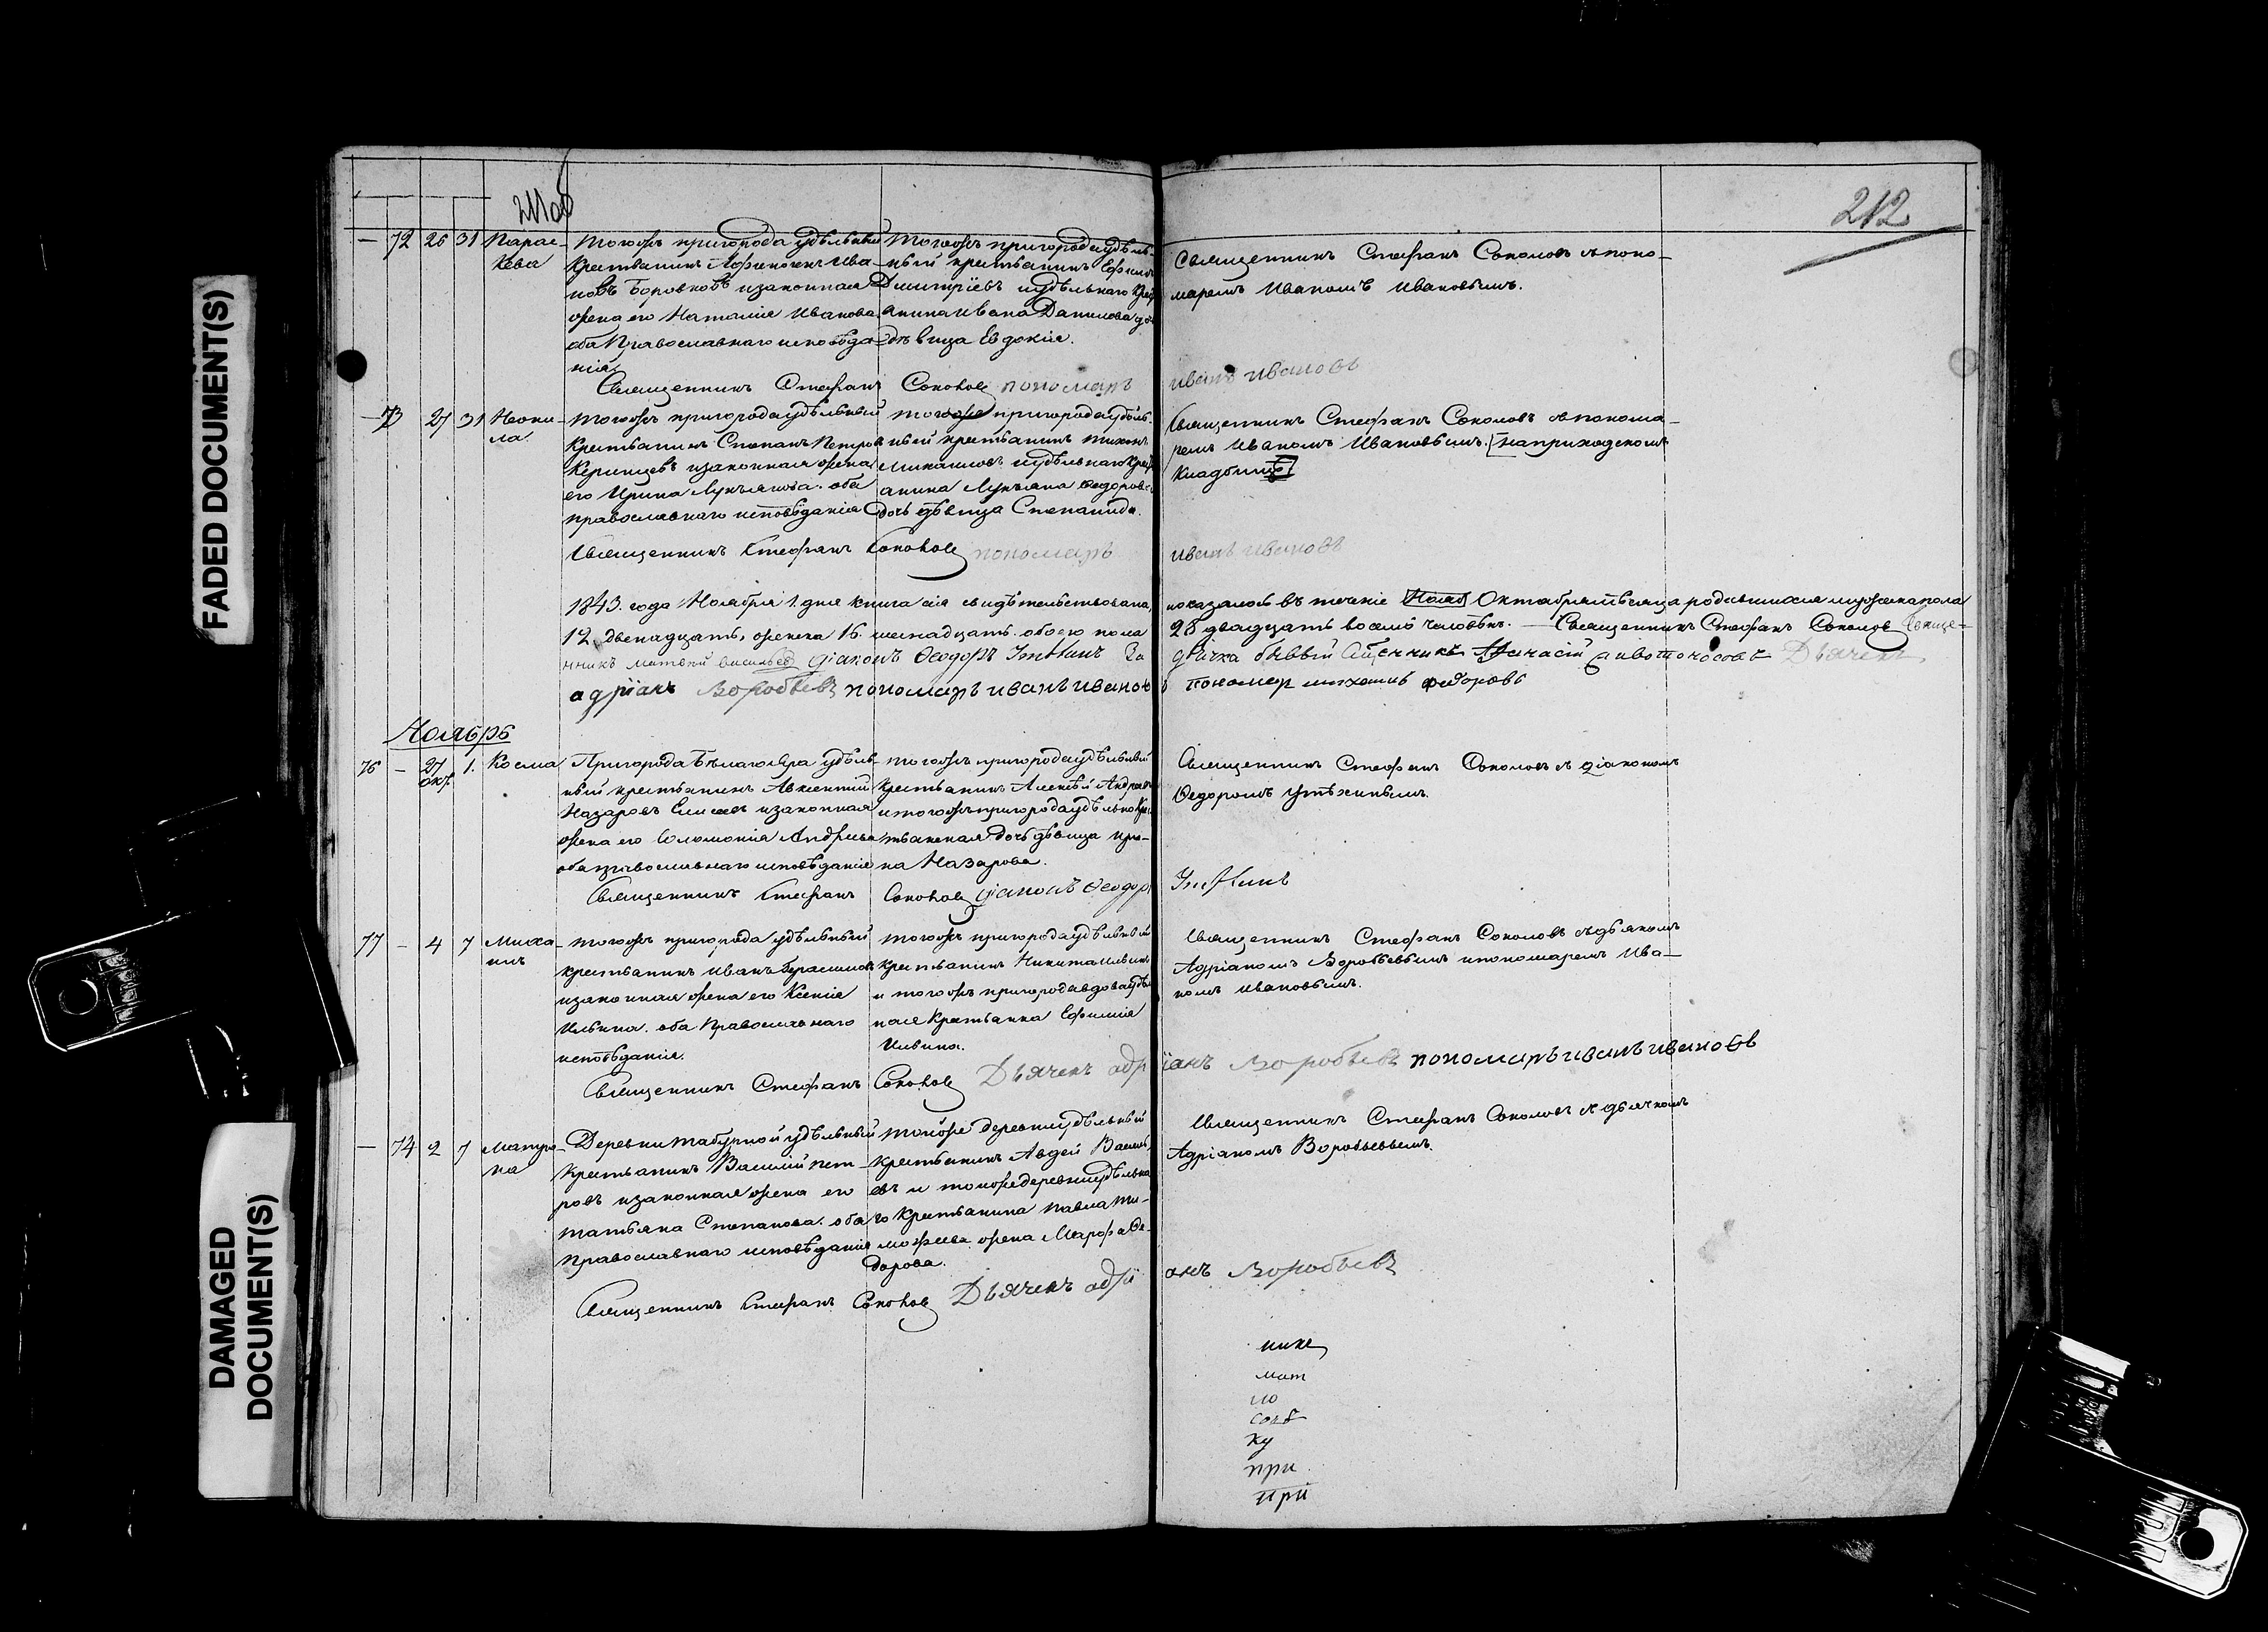 FADED DOCUMENT(S)
DAMAGED DOCUMENT(S)
211об
212
— 72 26 31 Парас-
кева
тогожъ пригорода удѣльный
крестьянинъ Ива-
новъ Боровковъ изаконная
жена его Наталія Иванова
оба Православнаго исповѣда-
нія.
тогожъ пригорода удѣль-
ный крестьянинъ Ефимъ
Дмитріевъ иудѣльнаго крес
янина Ивана Данилова до
дѣвица Евдокія.
Священникъ Стефанъ Соколовъ съ поно-
маремъ Иваномъ Ивановымъ.
Священникъ Стефанъ Соколовъ пономарь иванъ ивановъ
— 73 27 31 Неони-
ла.
тогожъ пригорода удѣльный
Крестьянинъ Степанъ Петров
изаконная жена
его Ирина Лукьянова. оба
православнаго исповѣданія
тогоже пригорода удѣль-
ный крестьянинъ тихонъ
Михаиловъ иудѣльнаго крес
янина Лукьяна Ѳедорова
дочь дѣвица Степанида.
Священникъ Стефанъ Соколовъ съ понома-
ремъ Иваномъ Ивановымъ. на приходскомъ
Кладбищѣ
Священникъ Стефанъ Соколовъ пономарь иванъ ивановъ
1843. года Ноября 1. дня книга сія свидѣтельствована, показалось въ теченіе Нояб Октября мѣсяца родившихся мужеска пола
12. двенадцать, женска 16. шеснадцать. обоего пола 28 двадцать восемь человѣкъ. — Священникъ Стефанъ Соколовъ Свяще-
нникъ матвей васильев діаконъ Ѳеодоръ Утѣхинъ За дьячка бывый Дьячекъ
адріанъ Воробьевъ пономарь иванъ ивановъ пономар михаилъ федоровъ
Ноябрь
76 — 27 окт. 1. Косма
Пригорода Бѣлаго Яра удѣль-
ный крестьянинъ Авксентій
Назаровъ изаконная
жена его Соломонія Андреева
оба православнаго исповѣданія
тогожъ пригорода удѣльный
Крестьянинъ Алексѣй Андреевъ
и тогожъ пригорода удѣльно Кре
тьянская дочь дѣвица Ири-
на Назарова.
Священникъ Стефанъ Соколовъ съ діакономъ
Ѳедоромъ Утѣхинымъ.
Священникъ Стефанъ Соколовъ діаконъ Ѳеодоръ Утѣхинъ
77 — 4 7 Миха-
илъ
тогожъ пригорода удѣльный
крестьянинъ Иванъ Герасимов
изаконная жена его Ксенія
Ильина. оба Православнаго
исповѣданія.
тогожъ пригорода удѣльный
крестьянинъ Никита Ильинъ
и тогожъ пригорода вдова удѣл
ная Крестьянка Ефимія
Ильина.
Священникъ Стефанъ Соколовъ съ дьякомъ
Адріаномъ Воробьевымъ ипономаремъ Ива-
номъ Ивановымъ.
Священникъ Стефанъ Соколовъ Дьячекъ адріанъ Воробьевъ пономарь иванъ ивановъ
— 74 2 7 Матро-
на
Деревни табурной удѣльный
Крестьянинъ Василій Пет-
ровъ изаконная жена его
татьяна Степанова. оба
Православнаго исповѣданія
тойже деревни удѣльный
крестьянинъ Авдей Васил
евъ и тойже деревни удѣльна
го Крестьянина Павла ти-
мофеева жена Марфа Ѳе-
дорова.
Священникъ Стефанъ Соколовъ съ дьячкомъ
Адріаномъ Воробьевымъ.
Священникъ Стефанъ Соколовъ Дьячекъ адріанъ Воробьевъ
мат
ло
ку
при
при